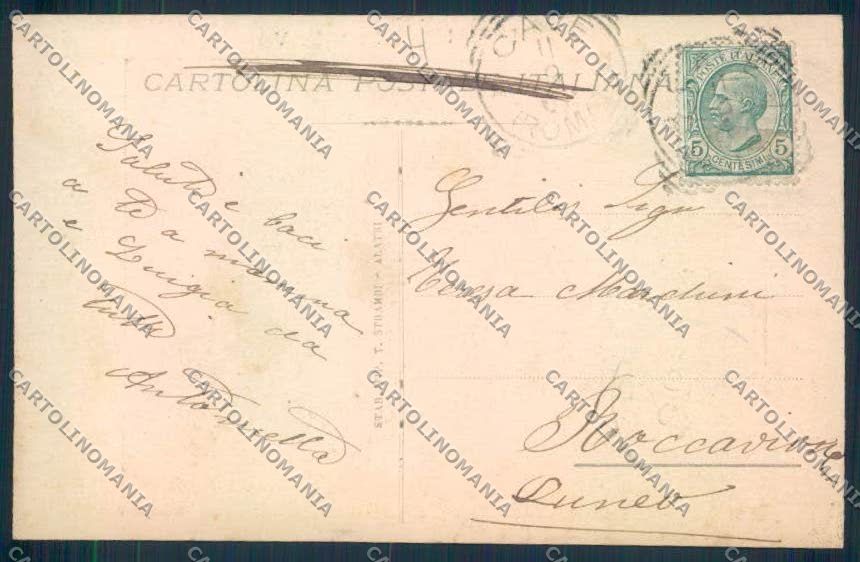 CARTOLINA POSTALE ITALIANA
POSTE ITALIANE
5 5
CENTESIMI
ROMA
Saluti e baci
a Te a mamma
e Luigia da
tutti
Antonietta
T. STRAMBI - ALATRI
Gentile Sign
Teresa Marchini
Roccavione
Cuneo
CARTOLINOMANIA